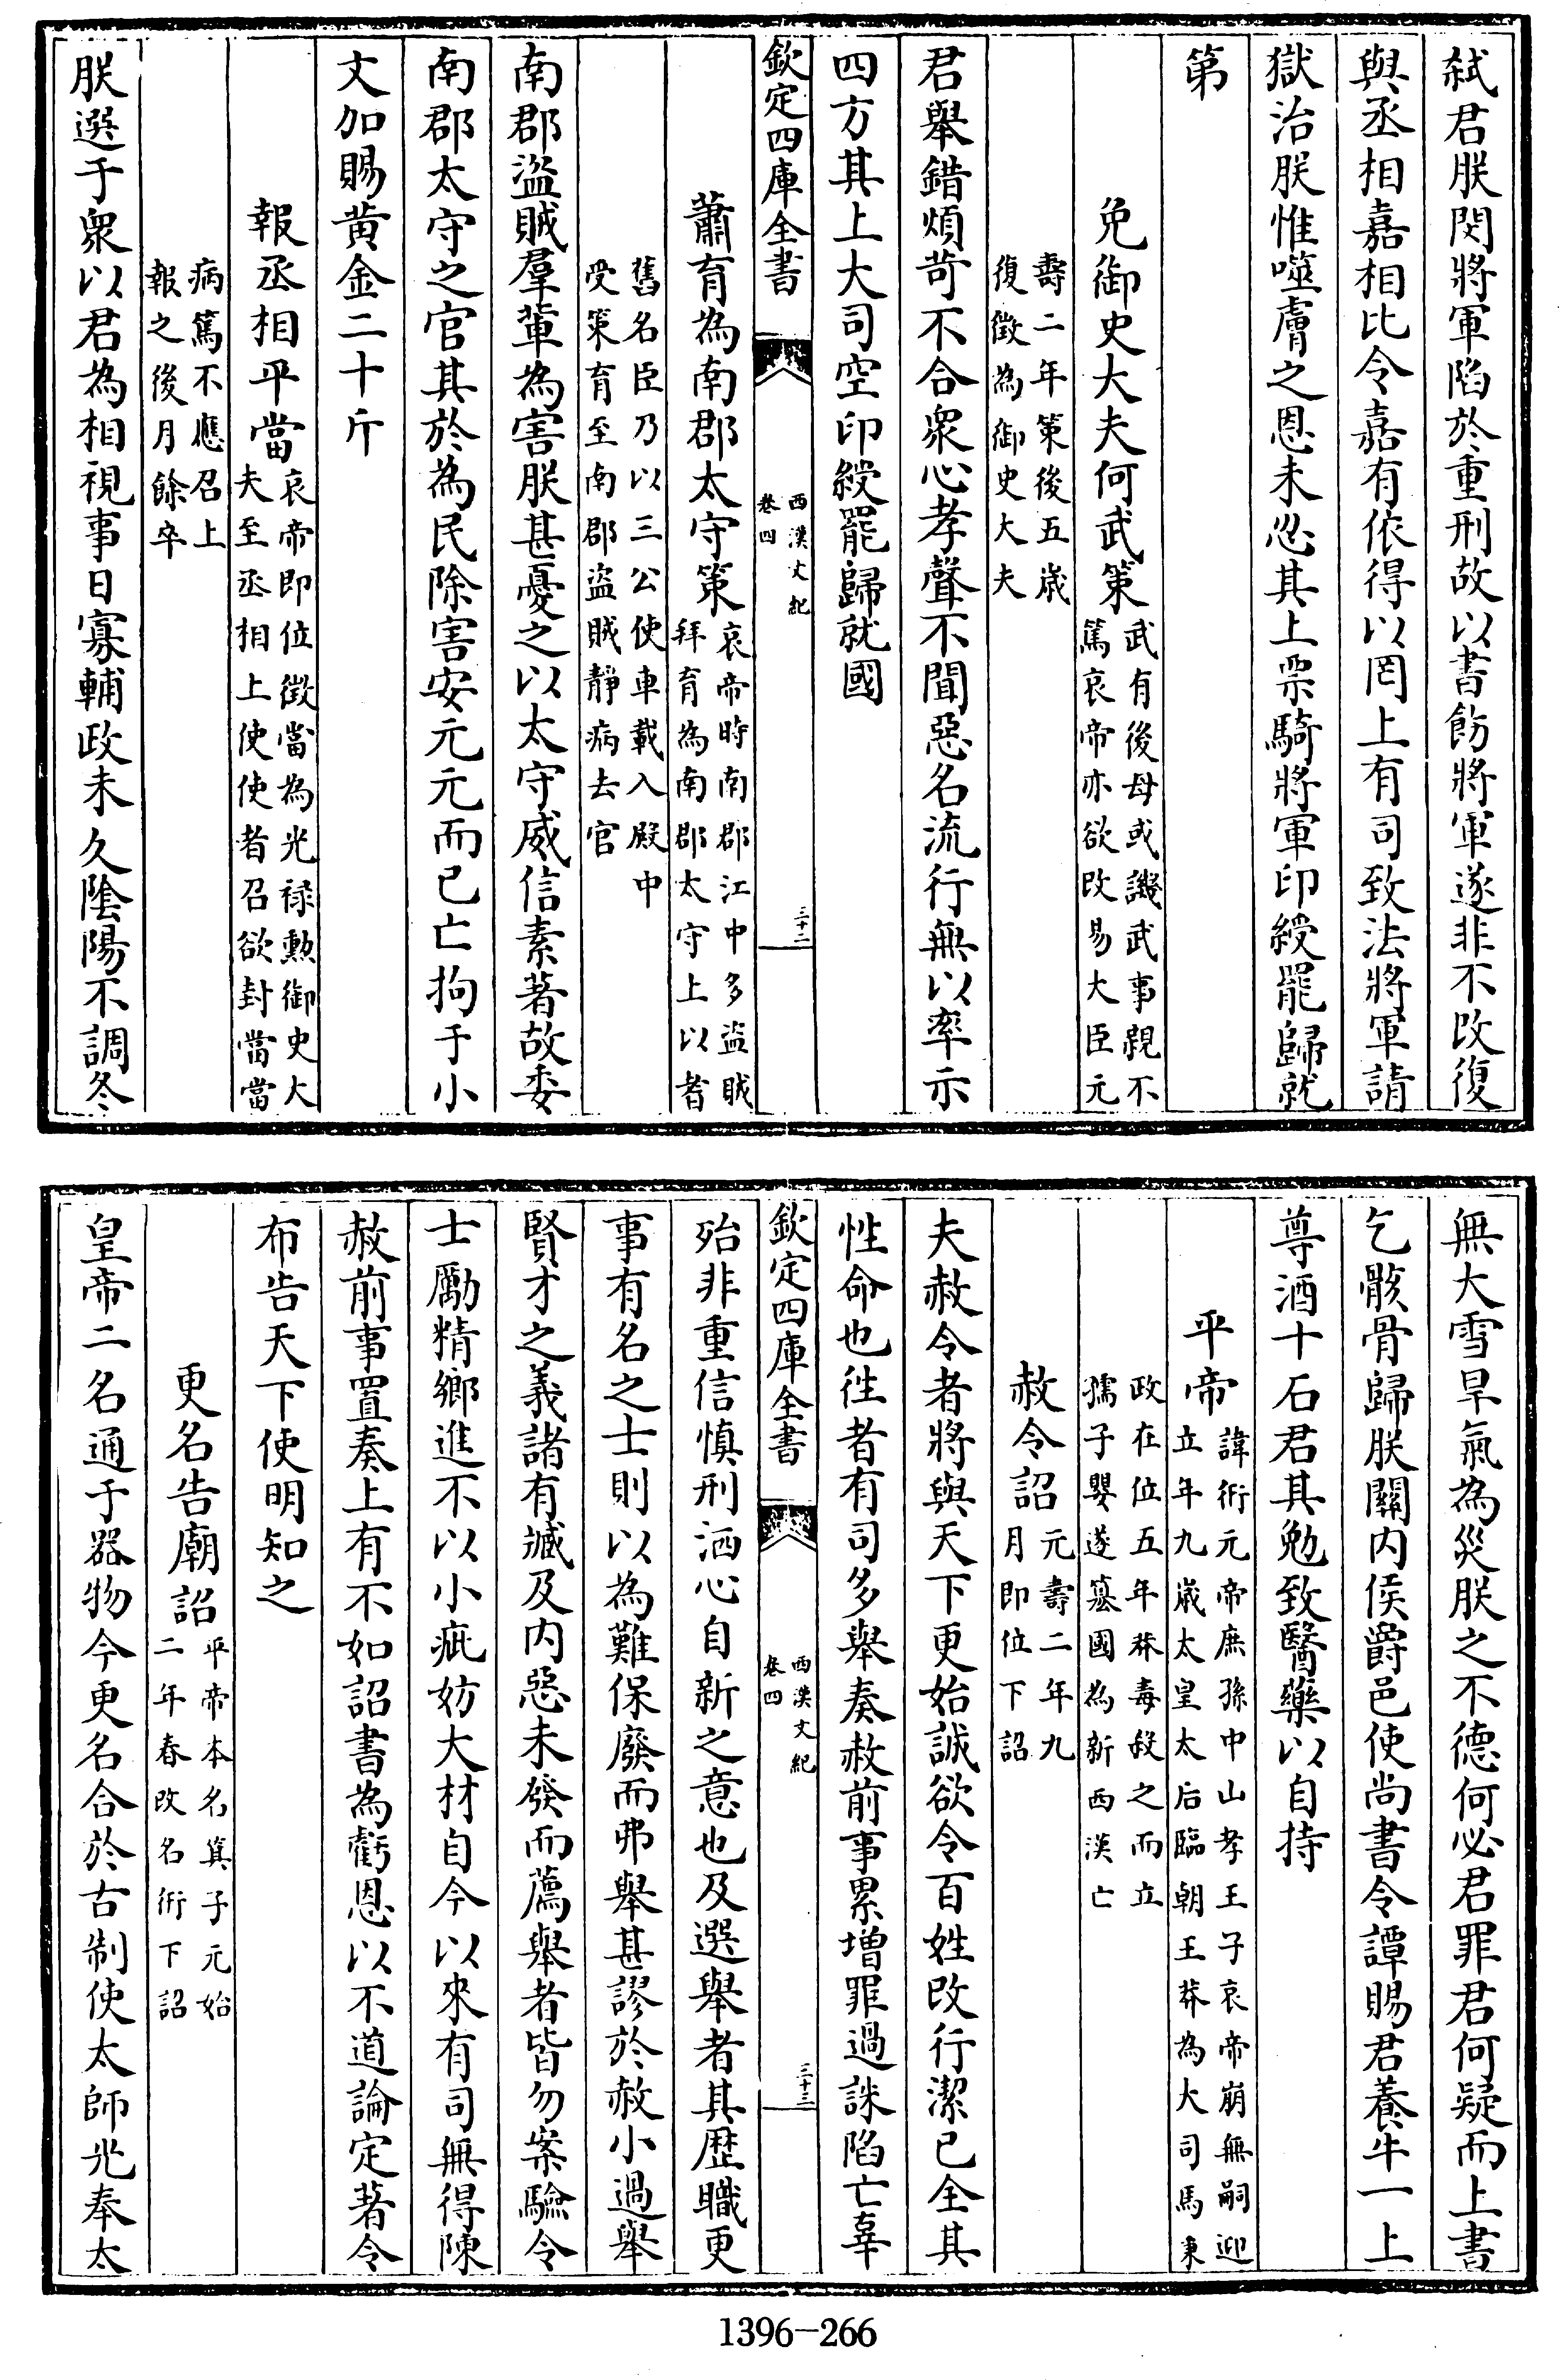 弑君朕閔將軍陷於重刑故以書飭將軍遂非不改復
與丞相嘉相比令嘉有依得以罔上有司致法將軍請
獄治朕惟噬膚之恩未忍其上票騎將軍印綬罷歸就
第
免御史大夫何武策武有後母或譏武事親不
篤哀帝亦欲改易大臣元
壽二年策後五歲
復徵為御史大夫
君舉錯煩苛不合衆心孝聲不聞惡名流行無以率示
四方其上大司空印綬罷歸就國
欽定四庫全書
西漢文紀
卷四
三十二
蕭育為南郡太守策哀帝時南郡江中多盜賊
拜育為南郡太守上以耆
舊名臣乃以三公使車載入殿中
受策育至南郡盜賊靜病去官
南郡盜賊羣輩為害朕甚憂之以太守威信素著故委
南郡太守之官其於為民除害安元元而已亡拘于小
文加賜黃金二十斤
報丞相平當哀帝即位徵當為光禄勲御史大
夫至丞相上使使者召欲封當當
病篤不應召上
報之後月餘卒
朕選于衆以君為相視事日寡輔政未久陰陽不調冬
無大雪旱氣為災朕之不德何必君罪君何疑而上書
乞骸骨歸朕關内侯爵邑使尚書令譚賜君養牛一上
尊酒十石君其勉致醫藥以自持
平帝諱衎元帝庶孫中山孝王子哀帝崩無嗣迎
立年九歲太皇太后臨朝王莽為大司馬秉
政在位五年莽毒殺之而立
孺子嬰遂簒國為新西漢亡
赦令詔元壽二年九
月即位下詔
夫赦令者將與天下更始誠欲令百姓改行潔已全其
性命也徃者有司多舉奏赦前事累增罪過誅陷亡辜
欽定四庫全書
西漢文紀
卷四
三十三
殆非重信慎刑洒心自新之意也及選舉者其歴職更
事有名之士則以為難保廢而弗舉甚謬於赦小過舉
賢才之義諸有臧及内惡未發而薦舉者皆勿案驗令
士勵精鄉進不以小疵妨大材自今以來有司無得陳
赦前事置奏上有不如詔書為虧恩以不道論定著令
布告天下使明知之
更名告廟詔平帝本名箕子元始
二年春改名衎下詔
皇帝二名通于器物今更名合於古制使太師光奉太
1396-266